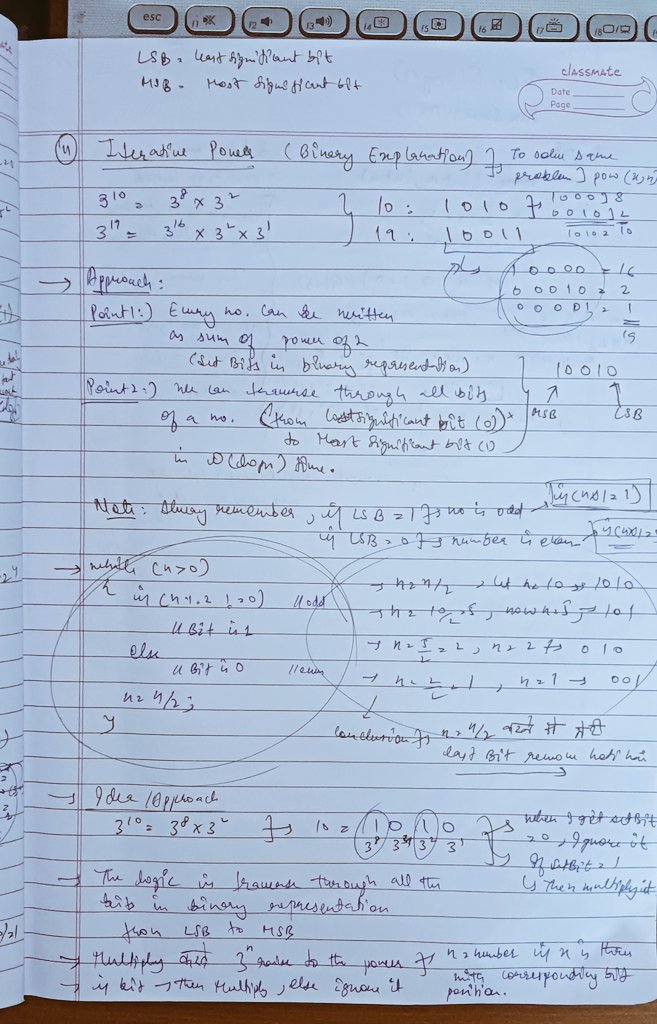 esc f1 f2 f3 f4 f5 f6 f7 f8
LSB = least significant bit
MSB = Most Significant bit
classmate
Date
Page
Iterative Power (Binary Explanation) } To solve same
problem } pow (x,n)
3^10 = 3^8 x 3^2
10 : 1010
10008
00102
1010 10
3^19 = 3^16 x 3^2 x 3^1
19 : 10011
10000 = 16
00010 = 2
00001 = 1
19
→ Approach :
Point 1:) Every no. can be written
as sum of power of 2
(Set Bits in binary representation)
10010
MSB LSB
Point 2:) We can traverse through all bits
of a no. (from least significant bit (0)
to Most Significant bit (1)
in O(logn) time.
Note : Always remember, if LSB = 1 } → no is odd
if LSB = 0 } → number is even
→ while (n>0)
{
if (n%2 != 0) //odd
// Bit is 1
else
// Bit is 0 //even
n = n/2 ;
}
→ n = n/2 , let n = 10 → 1010
→ n = 10/2 = 5 , now n = 5 → 101
→ n = 5/2 = 2 , n = 2 → 010
→ n = 2/2 = 1 , n = 1 → 001
Conclusion → n = n/2 करने से मेरी
last Bit remove hoti hai
→ Idea / Approach
3^10 = 3^8 x 3^2 } → 10 = 1 0 1 0
3^8 3^4 3^2 3^1
when I get setBit
= 0 , Ignore it
If setBit = 1
↳ Then multiply it
→ The logic is traverse through all the
bits in binary representation
from LSB to MSB
→ Multiply 3^n raise to the power
n = number if n is there
with corresponding bit
position.
→ if bit → then Multiply , else ignore it